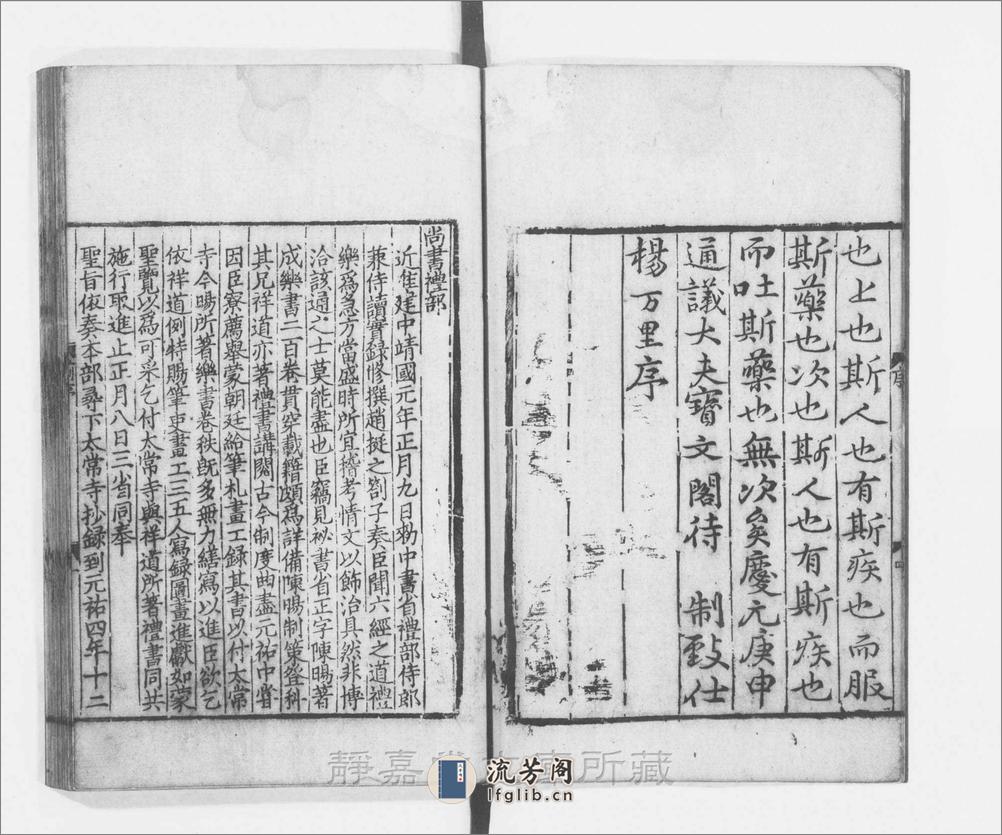 也上也斯人也有斯疾也而服
斯藥也次也斯人也有斯疾也
而吐斯藥也無次矣慶元庚申
通議大夫寶文閣待 制致仕
楊万里序
序
尚書禮部
近准建中靖國元年正月九日勑中書省禮部侍郎
兼侍讀實録修撰趙挺之劄子奏臣聞六經之道禮
樂爲急方當盛時所宜稽考情文以飾治具然非博
洽該通之士莫能盡也臣竊見祕書省正字陳暘著
成樂書二百卷貫穿載籍頗爲詳備陳暘制策登科
其兄祥道亦著禮書講閱古今制度曲盡元祐中嘗
因臣寮薦舉蒙朝廷給筆札畫工録其書以付太常
寺今暘所著樂書卷秩旣多無力繕寫以進臣欲乞
依祥道例特賜筆吏畫工三五人寫録圖畫進獻如蒙
聖覽以爲可采乞付太常寺與祥道所著禮書同共
施行取進止正月八日三省同奉
聖旨依奏本部尋下太常寺抄録到元祐四年十二
靜嘉堂文庫所藏
流芳阁
lfglib.cn